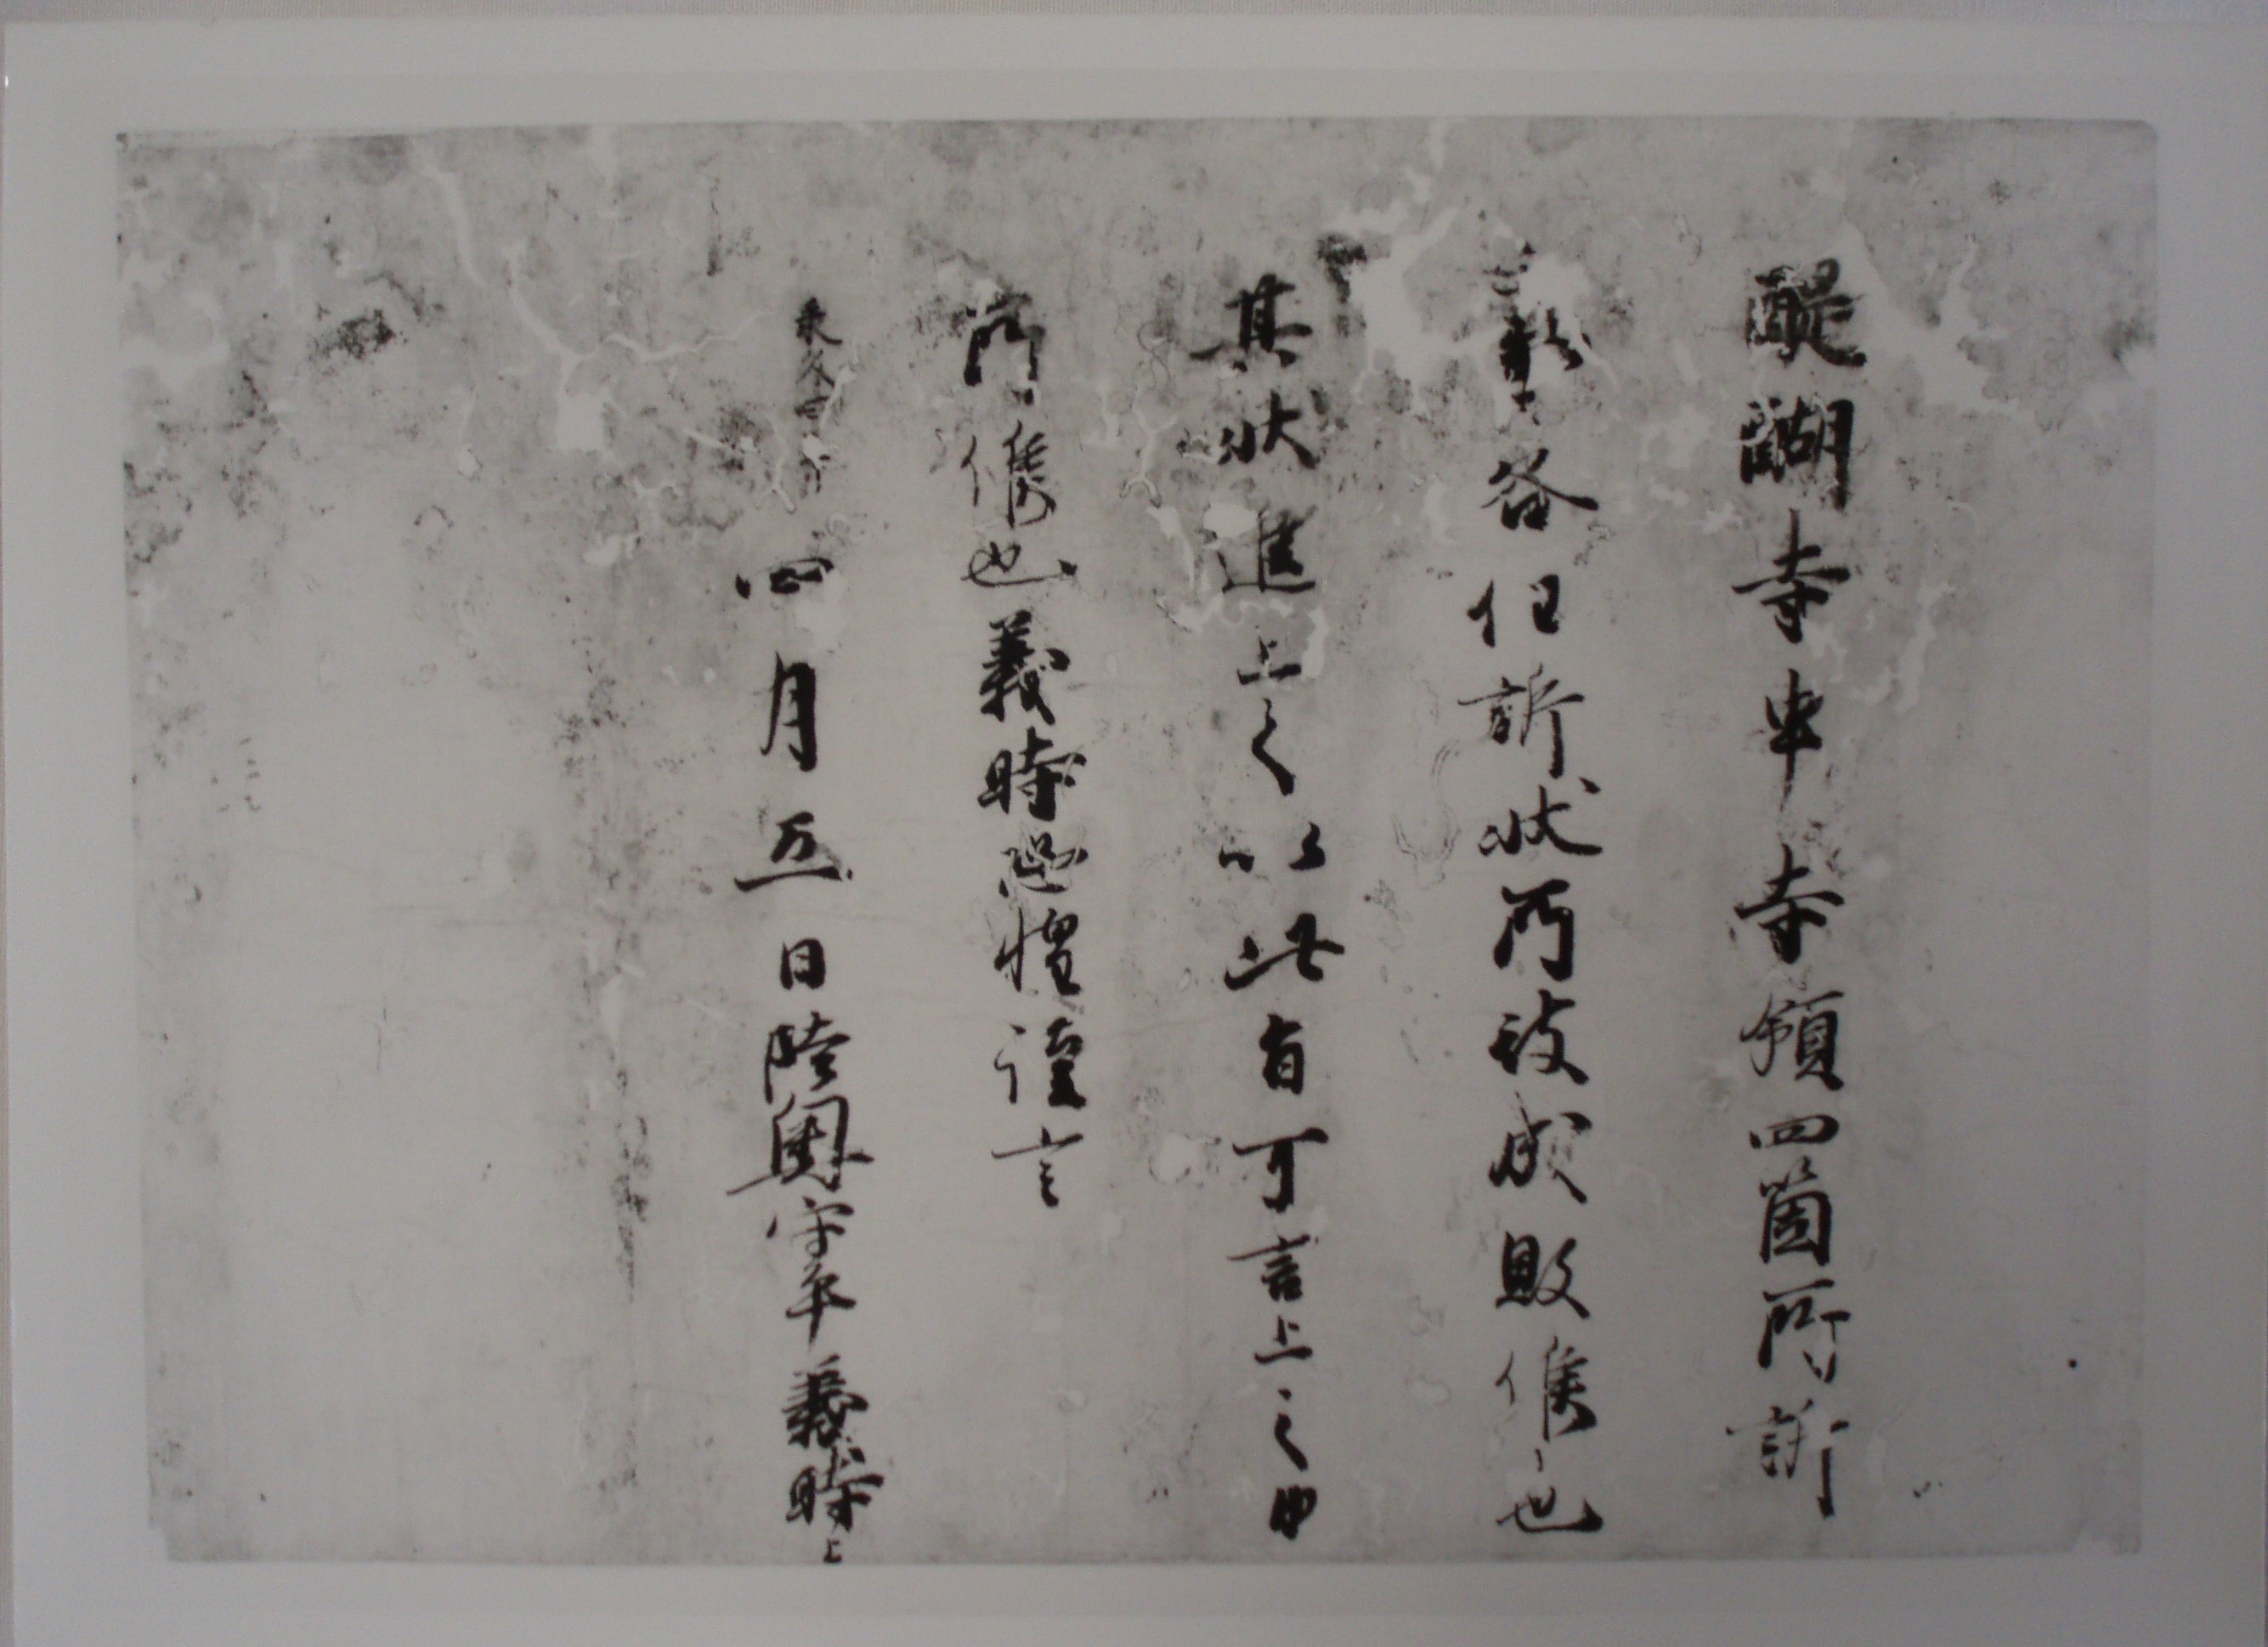 醍醐寺申寺領四箇所訴
各、但訴状所被成敗候也
其状進上之、以此旨可言上之由
所候也、義時恐惶謹言
承久
四月五日陸奥守平義時上